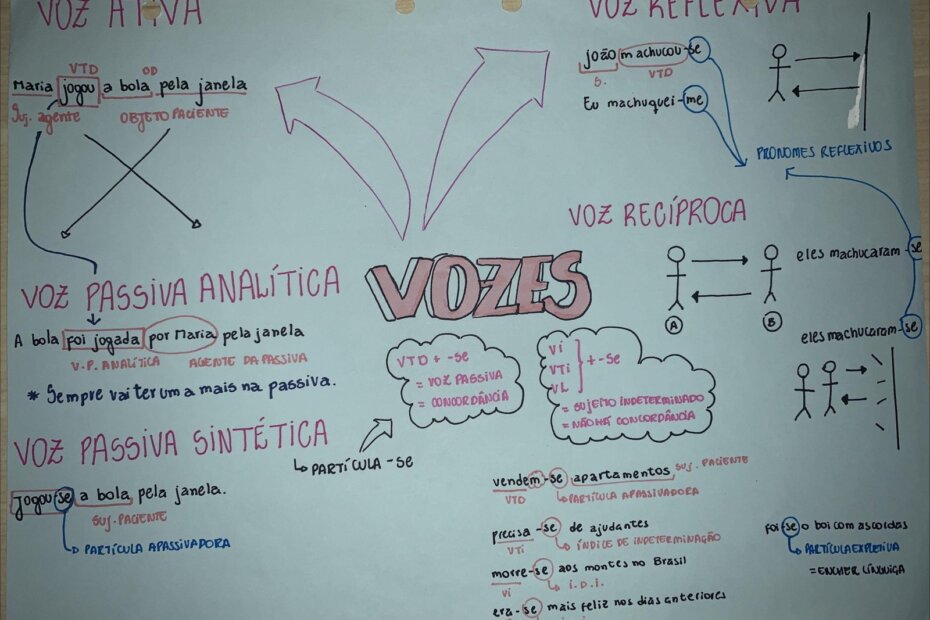 VOZ ATIVA
VTD
OD
Maria jogou a bola pela janela
Suj. agente
OBJETO PACIENTE
VOZ PASSIVA ANALÍTICA
A bola foi jogada por Maria pela janela
V.P. ANALÍTICA
AGENTE DA PASSIVA
* Sempre vai ter um a mais na passiva.
VOZ PASSIVA SINTÉTICA
Jogou-se a bola pela janela.
SUJ. PACIENTE
PARTÍCULA APASSIVADORA
VOZES
VTD + -SE
= VOZ PASSIVA
= CONCORDÂNCIA
PARTÍCULA -SE
VI
VTI
VL
+ -SE
= SUJEITO INDETERMINADO
= NÃO HÁ CONCORDÂNCIA
vendem-se apartamentos
SUJ. PACIENTE
VTD
PARTÍCULA APASSIVADORA
precisa-se de ajudantes
VTI
ÍNDICE DE INDETERMINAÇÃO
morre-se aos montes no Brasil
VI
I.D.I.
era-se mais feliz nos dias anteriores
VOZ REFLEXIVA
João machucou-se
S.
VTD
Eu machuquei-me
PRONOMES REFLEXIVOS
VOZ RECÍPROCA
A
B
eles machucaram-se
eles machucaram-se
Foi-se o boi com as cordas
PARTÍCULA EXPLETIVA
= ENCHER LINGUIÇA